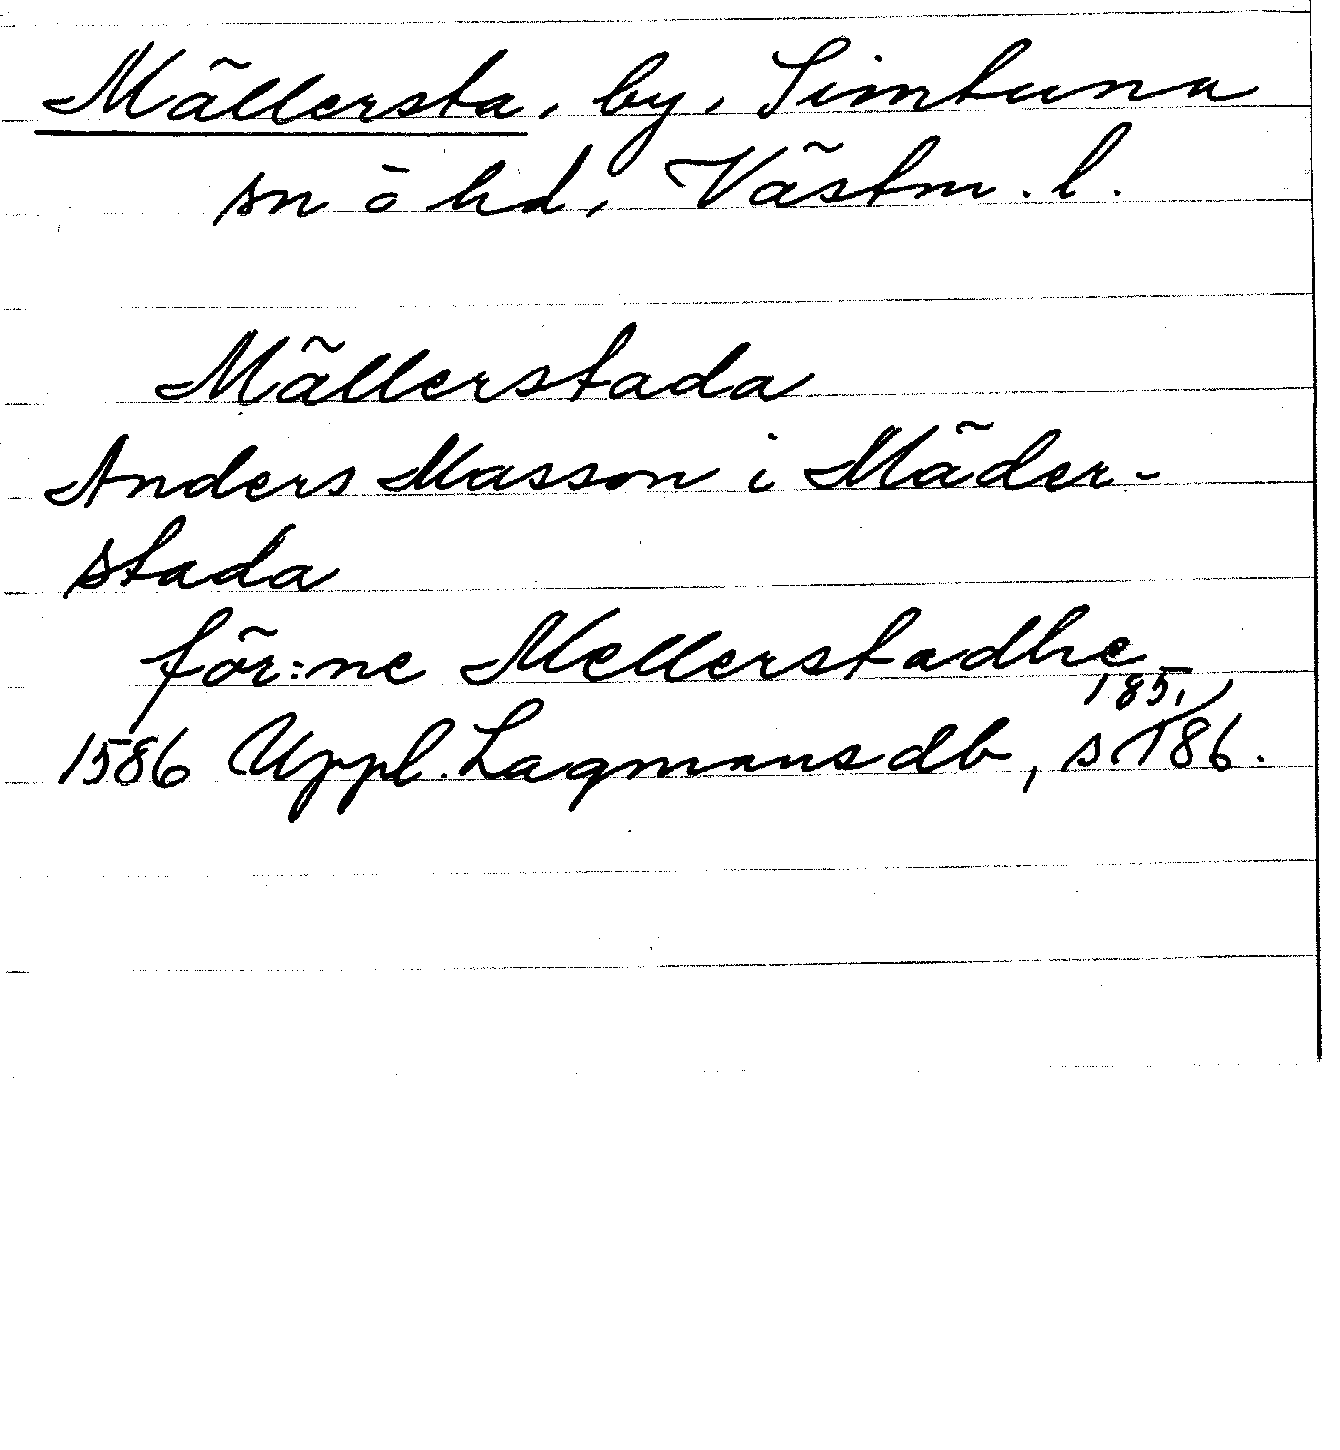 Mällersta, by, Simtuna
sn ō hd, Västm. l.
Mällerstada
Anders Masson i Mäder-
stada
för:ne Mellerstadhe
1586 Uppl. Lagmansdb, s 185, 186.